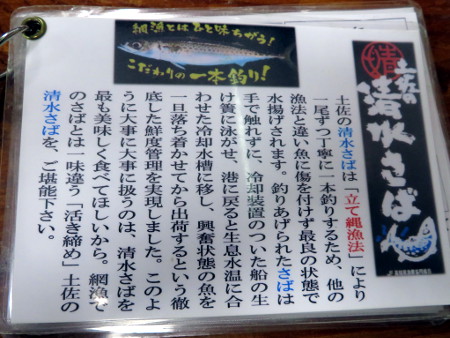 網漁とはひと味ちがう!
こだわりの一本釣り!
土佐の
清水さば
土佐の清水さばは「立て縄漁法」により
一尾ずつ丁寧に一本釣りするため、他の
漁法と違い魚に傷を付けず最良の状態で
水揚げされます。釣りあげられたさばは
手で触れずに、冷却装置のついた船の生
け簀に泳がせ、港に戻ると生息水温に合
わせた冷却水槽に移し、興奮状態の魚を
一旦落ち着かせてから出荷するという徹
底した鮮度管理を実現しました。このよ
うに大事に大事に扱うのは、清水さばを
最も美味しく食べてほしいから。網漁で
のさばとは一味違う「活き締め」土佐の
清水さばを、ご堪能下さい。